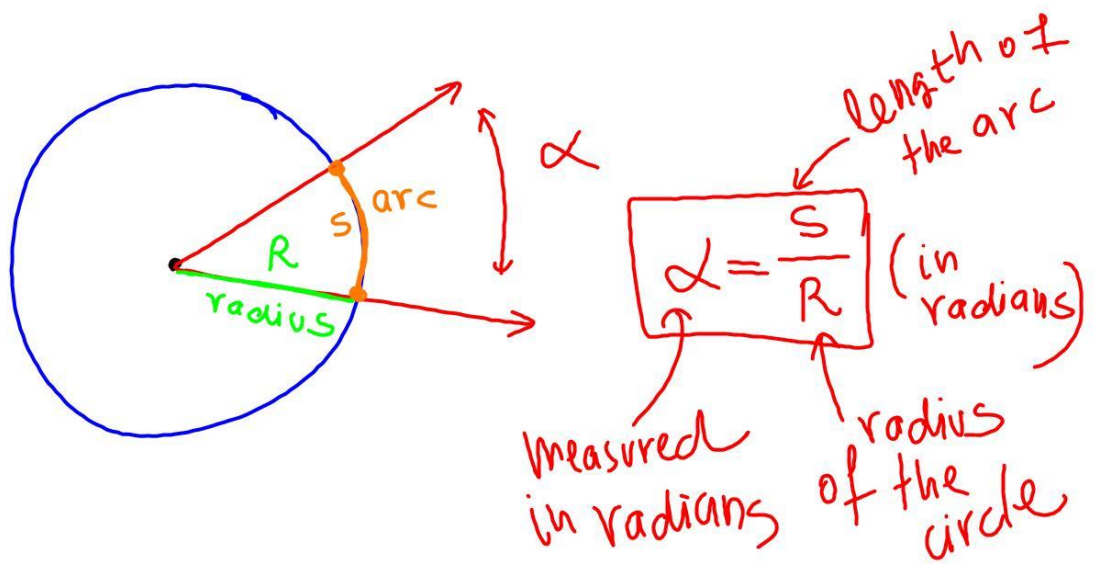 α
arc
s
R
radius
length of
the arc
α = S/R
(in
radians)
measured
in radians
radius
of the
circle